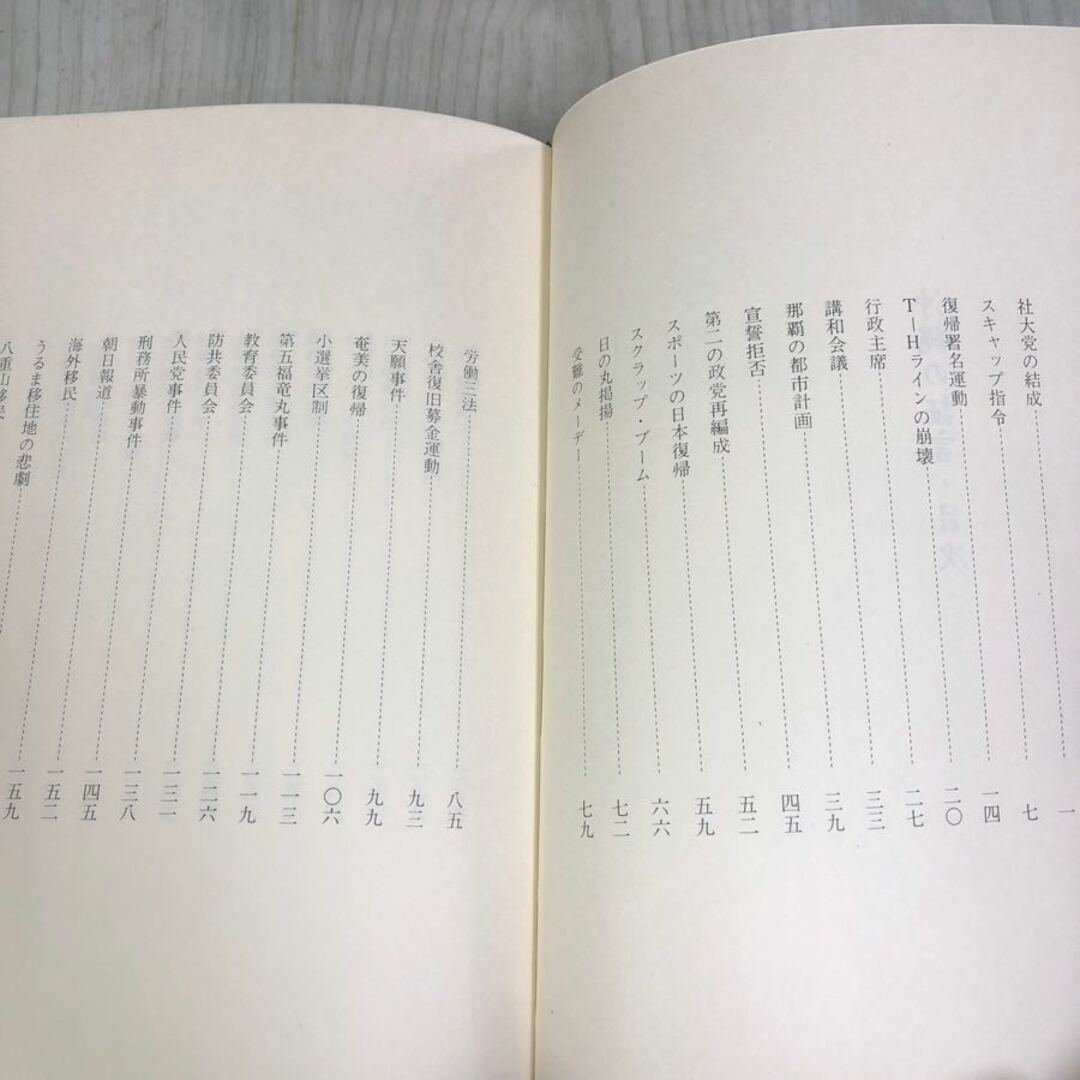 社大党の結成……一
スキャップ指令……七
復帰署名運動……一四
T―Hラインの崩壊……二〇
行政主席……二七
講和会議……三三
那覇の都市計画……三九
宣誓拒否……四五
第二の政党再編成……五二
スポーツの日本復帰……五九
スクラップ・ブーム……六六
日の丸掲揚……七二
受難のメーデー……七九
労働三法……八五
校舎復旧募金運動……九三
天願事件……九九
奄美の復帰……一〇六
小選挙区制……一一三
第五福竜丸事件……一一九
教育委員会……一二六
防共委員会……一三二
人民党事件……一三八
刑務所暴動事件……一四五
朝日報道……一五二
海外移民……一五九
うるま移住地の悲劇……
八重山移民……